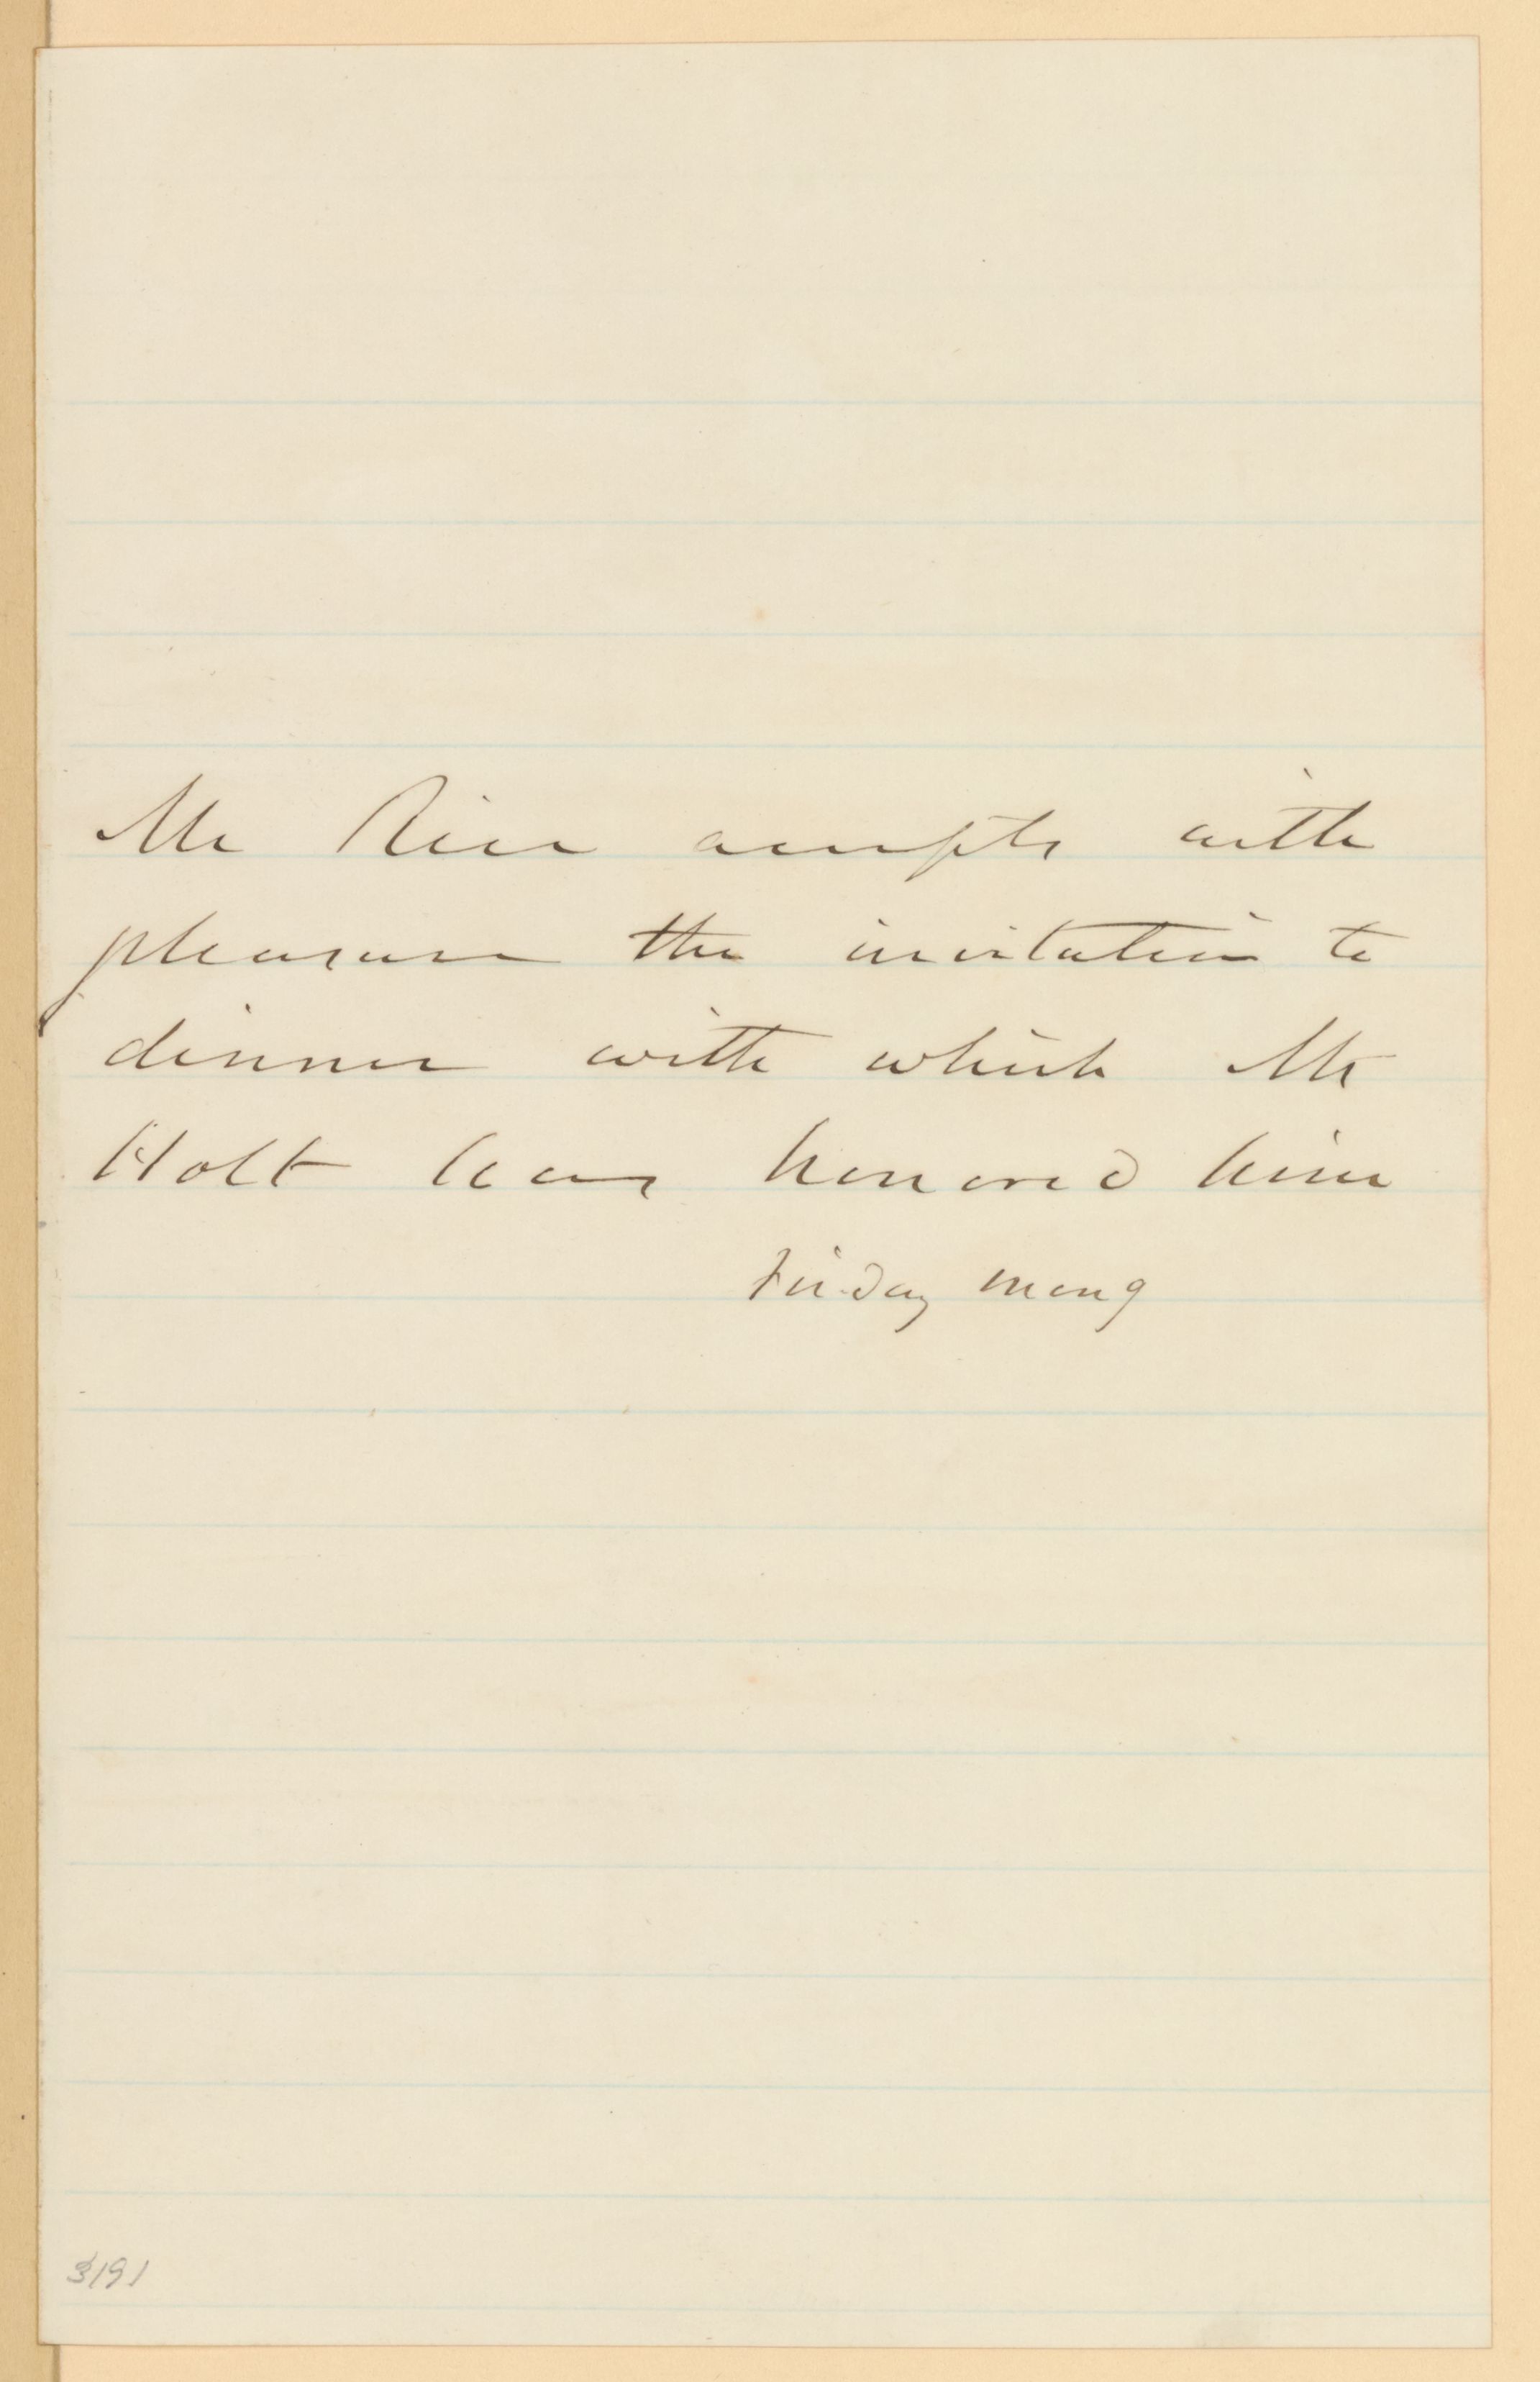 Mr Rice accepts with
pleasure the invitation to
dinner with which Mr
Holt has honored him
Friday morng
3191